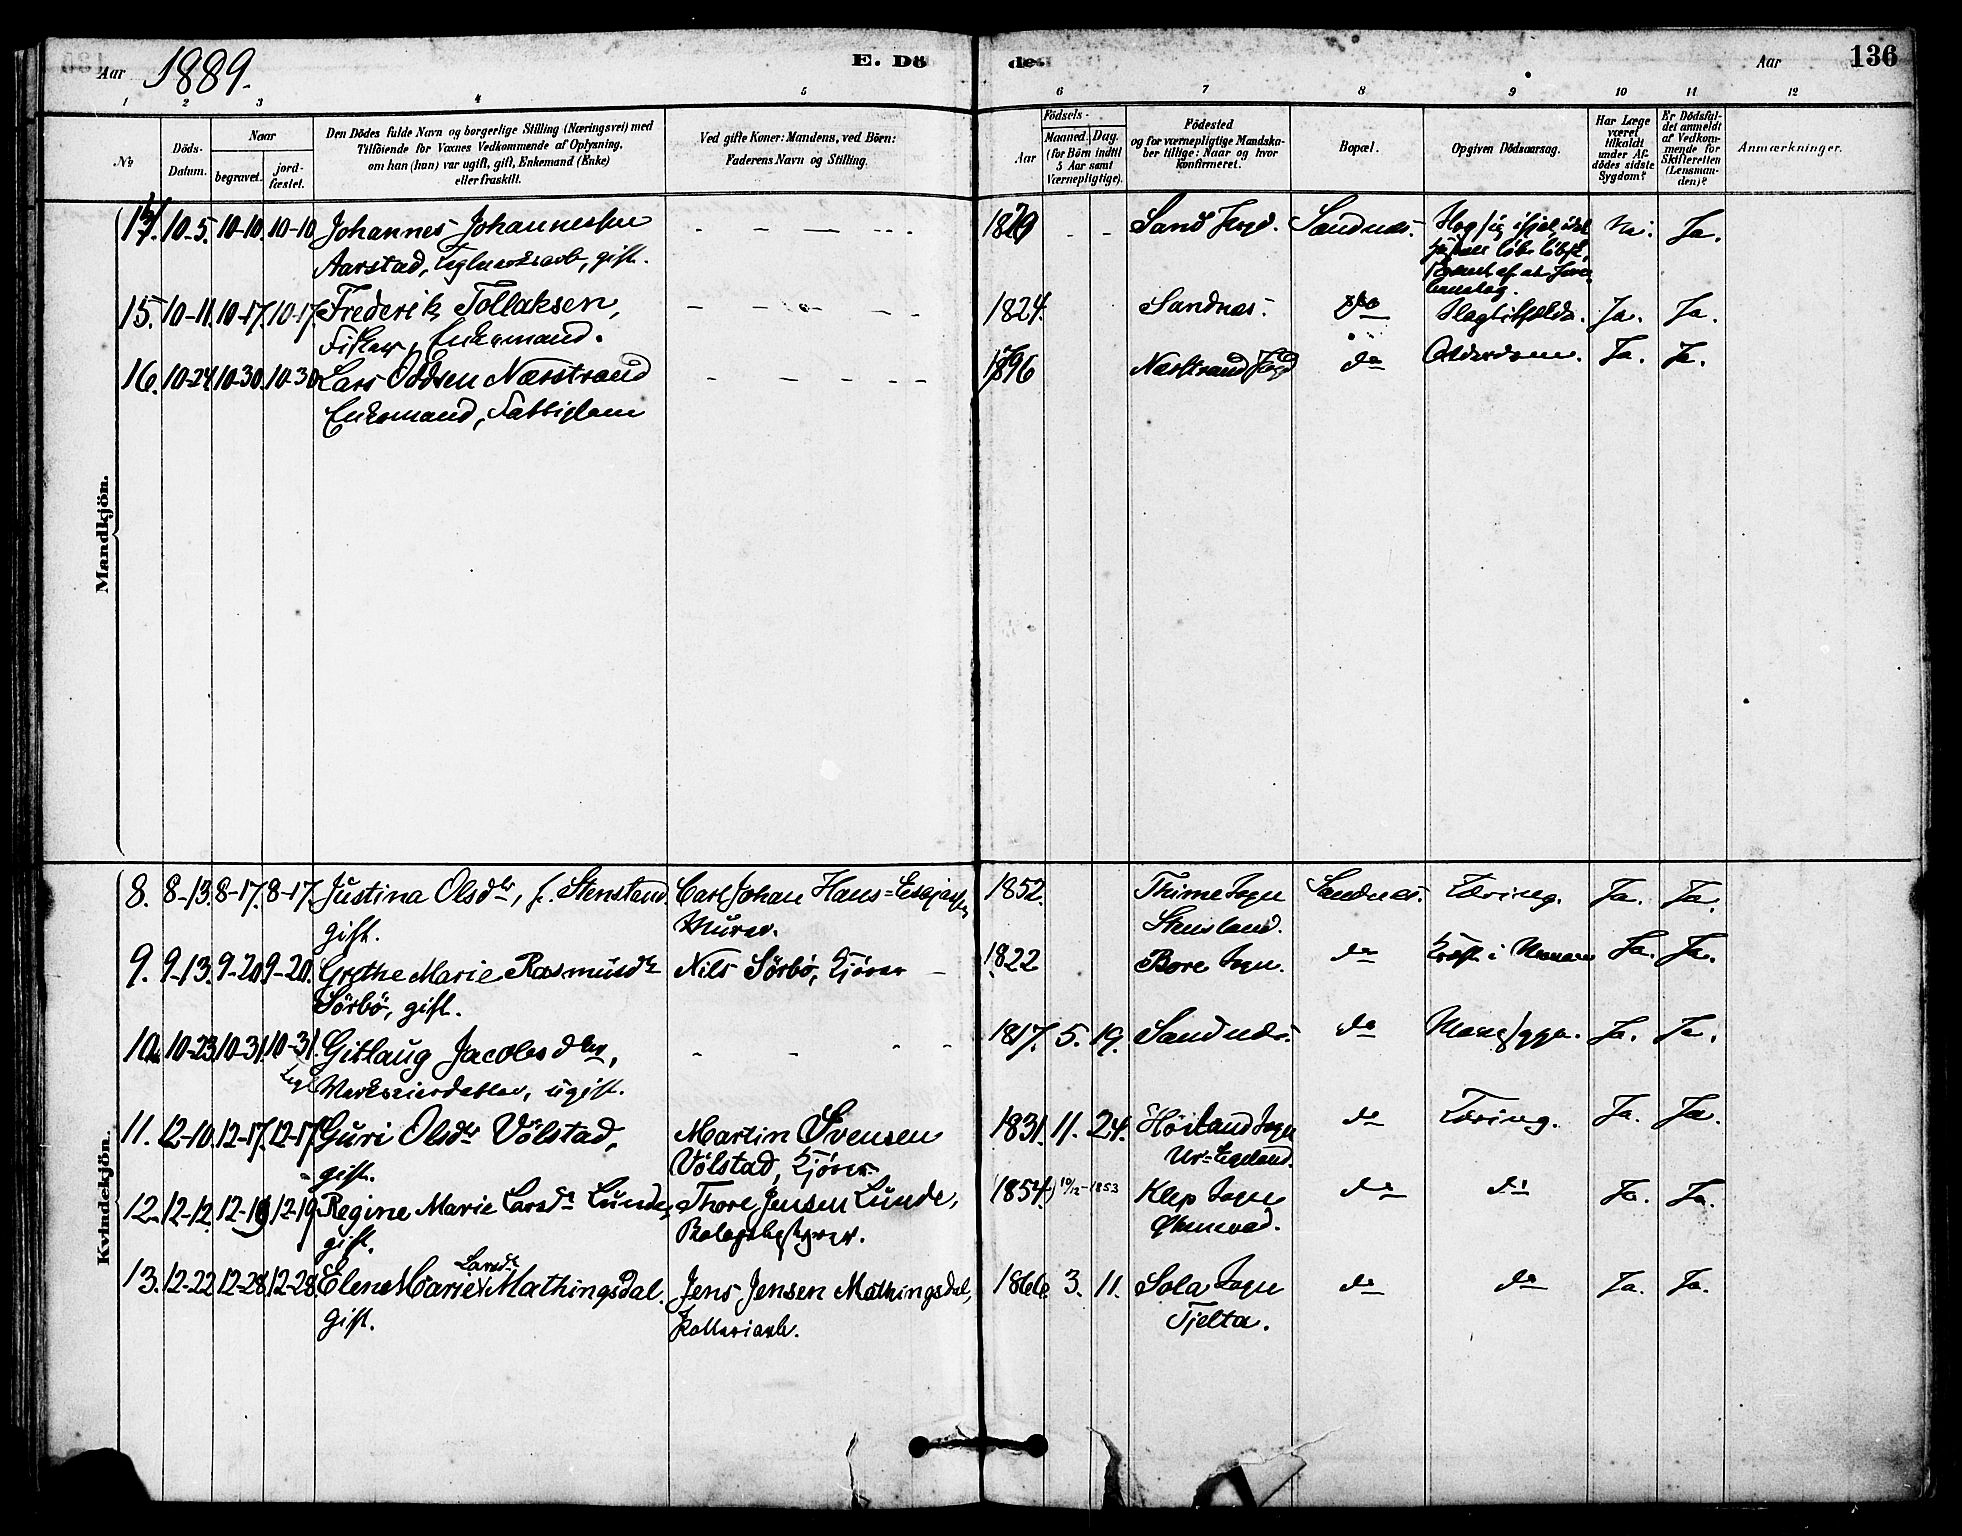 Aar 1889. E. Dö de. Aar 136
1 2 3 4 5 6 7 8 9 10 11 12
№
Döds-
Datum.
Naar
begravet.
jord-
fæstet.
Den Dödes fulde Navn og borgerlige Stilling (Næringsvei) med
Tilföiende for Voxnes Vedkommende af Oplysning,
om han (hun) var ugift, gift, Enkemand (Enke)
eller fraskilt.
Ved gifte Koner: Mandens, ved Börn:
Faderens Navn og Stilling.
Födsels-
Aar
Maaned. Dag.
(for Börn indtil
5 Aar samt
Værnepligtige).
Födested
og for værnepligtige Mandska-
ber tillige: Naar og hvor
konfirmeret.
Bopæl.
Opgiven Dödsaarsag.
Har Læge
været
tilkaldt
under Af-
dödes sidste
Sygdom?
Er Dödsfal-
det anmeldt
af Vedkom-
mende for
Skifteretten
(Lensman-
den)?
Anmærkninger.
Mandkjön.
14. 10-5. 10-10. 10-10 Johannes Johannessen - - - - - - - Sand Sogn. Sandnæs. Ja.
Aarstad, gift.
15. 10-11. 10-17. 10-17. Frederik Tollaksen, - - - - - 1824. Sandnæs. Ja. Ja.
Fisker, Enkemand.
16. 10-24. 10-30. 10-30. Lars Oddsen Nærstrand - - - - - Nærstrand do Alderdom. Ja. Ja.
Enkemand, Fattiglem
Kvindekjön.
8. 8-13. 8-17. 8-17. Justina Olsdtr, f. Stensland. Carl Johan Hans= 1852. Thime Sogn Sandnæs. Tæring. Ja. Ja.
gift. Murer. Stensland.
9. 9-13. 9-20. 9-20. Grethe Marie Rasmusdtr Nils Sörbö, Kjörer - 1822 Bore Sogn. do Kræft i Ja. Ja.
Sörbö, gift.
10. 10-23. 10-31. 10-31. Gitlaug Jacobsdtter, - - - - 1817. 5. 19. Sandnæs. do Ja. Ja.
Teglverkseierdatter, ugift.
11. 12-10. 12-17. 12-17. Guri Olsdtr Völstad, Martin Svensen 1831. 11. 24. Höiland Sogn do Tæring. Ja. Ja.
gift. Völstad, Kjörer.
12. 12-12. 12-19 12-19 Regine Marie Larsdtr Lunde, Thore Jensen Lunde, 1854. 10/12-1853 Klep Sogn do do Ja. Ja.
gift.
13. 12-22. 12-28. 12-28. Elen Marie Larsdtr Mathingsdal. Jens Jensen Mathingsdal, 1866. 3. 11. Sola Sogn do do Ja. Ja.
gift. Tjelta.